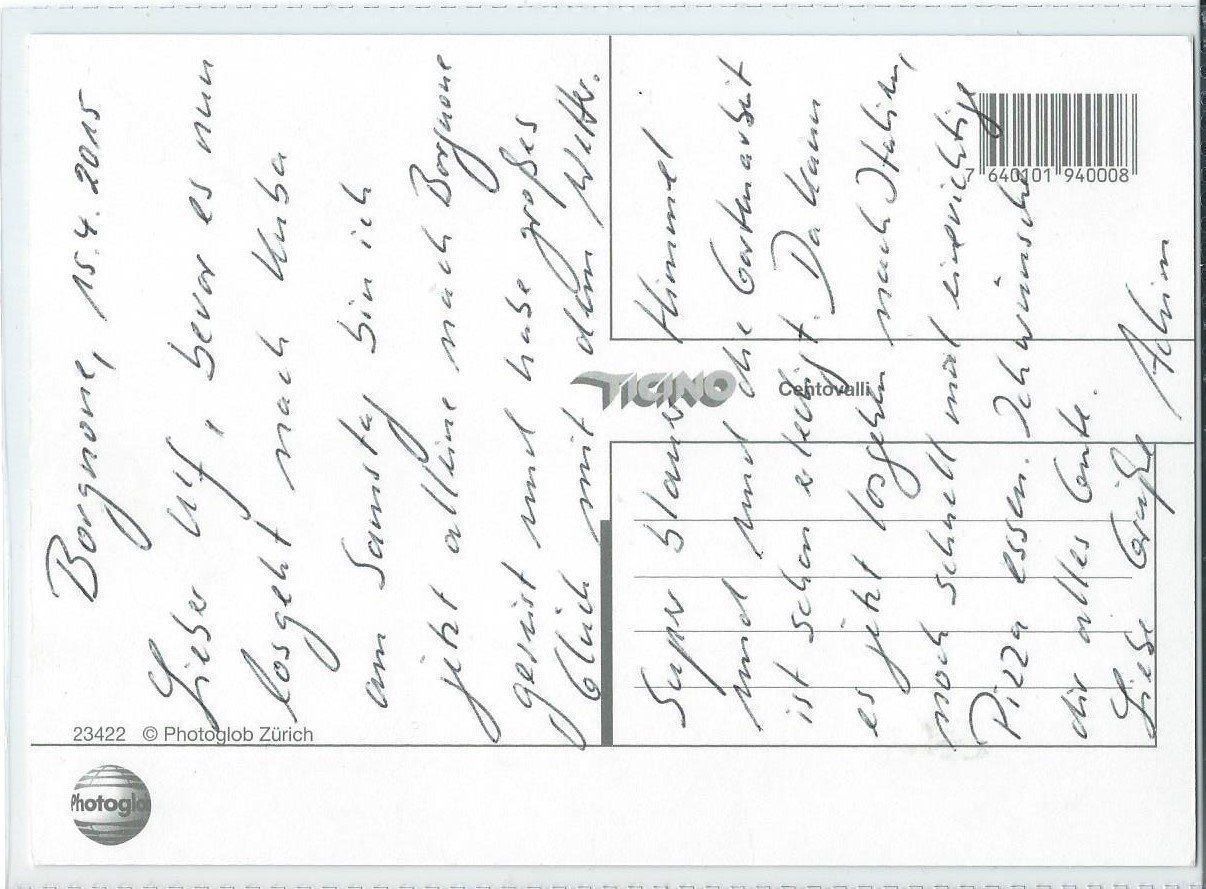 Borgnone, 15.4.2015
Lieber Ulf, bevor es nun
losgeht nach Kuba
am Samstag bin ich
jetzt alleine nach Borgnone
gereist und habe großes
Glück mit dem Wetter.
Super blauer Himmel
und und die Gartenarbeit
ist schon erledigt. Da kann
es jetzt losgehen nach Italien,
noch schnell mal eine richtige
Pizza essen. Ich wünsche
dir alles Gute.
Liebe Grüße Achim
TICINO
Centovalli
7 640101 940008
23422 © Photoglob Zürich
Photoglob